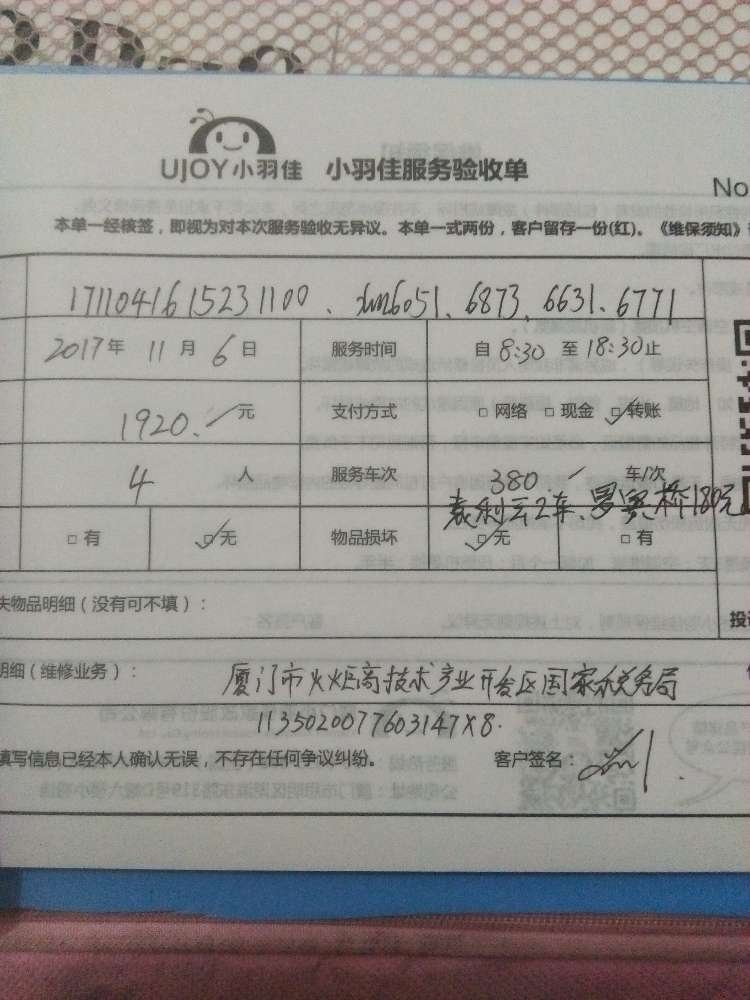 UJOY小羽佳 小羽佳服务验收单
No
本单一经核签，即视为对本次服务验收无异议。本单一式两份，客户留存一份(红)。《维保须知》
1711041615231100、xm6051、6873、6631、6771
2017年 11月 6日 服务时间 自 8:30 至 18:30止
1920. 元 支付方式 □网络 □现金 □转账
4 人 服务车次 380 车/次
袁利云2车、罗赛桥180元
□有 □无 物品损坏 □无 □有
失物品明细（没有可不填）：
投诉
明细（维修业务）： 厦门市火炬高技术产业开发区国家税务局
11350200776031 47X8.
填写信息已经本人确认无误，不存在任何争议纠纷。 客户签名：